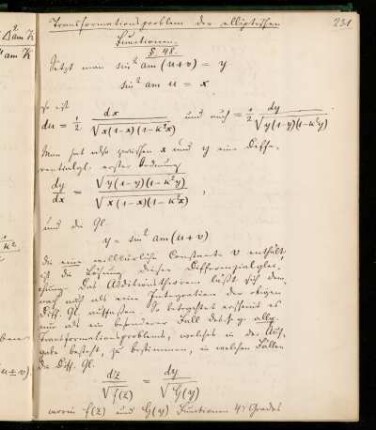 Transformationsproblem der elliptischen 231
Functionen.
§. 48.
Setzt man sin² am (u+v) = y
sin² am u = x
so ist
du = 1/2 dx / √x(1-x)(1-k²x) und auch = 1/2 dy / √y(1-y)(1-k²y)
Man hat also zwischen x und y eine Diffe-
rentialgl. erster Ordnung
dy/dx = √y(1-y)(1-k²y) / √x(1-x)(1-k²x) ,
und die Gl.
y = sin² am (u+v)
die eine willkürliche Constante v enthält,
ist die Lösung dieser Differentialglei-
chung. Das Additionstheorem läßt sich dem-
nach als eine Integration der obigen
Diff. Gl. auffassen. So betrachtet erscheint es
nur als ein besonderer Fall des s. g. allg.
Transformationsproblems, welches in der Auf-
gabe besteht, zu bestimmen, in welchen Fällen
die Diff. Gl.
dx / √f(x) = dy / √G(y)
worin f(x) und G(y) Functionen 4ten Grades